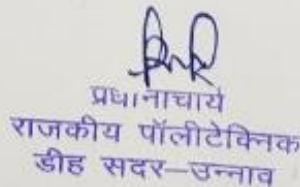 प्रधानाचार्य
राजकीय पॉलीटेक्निक
डीह सदर–उन्नाव